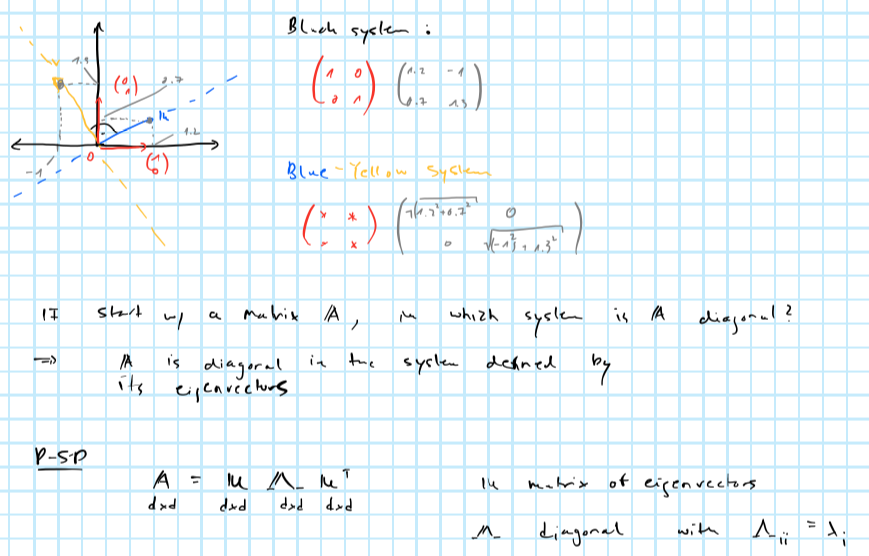 Black system :
1.3
(0 1)
0.7
1.2
-1
0
(1 0)
(1 0 (1.2 -1
0 1) 0.7 1.3)
Blue-Yellow system
(* * (√1.2²+0.7² 0
* *) 0 √(-1)²+1.3²)
If start w/ a matrix A, in which system is A diagonal?
=> A is diagonal in the system defined by
its eigenvectors
P-S-D
A = U Λ Uᵀ
dxd dxd dxd dxd
U matrix of eigenvectors
Λ diagonal with Λᵢᵢ = λᵢ